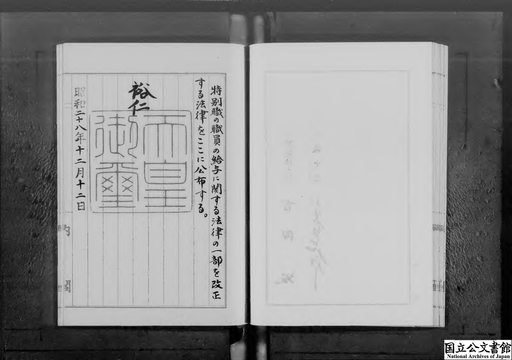 特別職の職員の給与に関する法律の一部を改正
する法律をここに公布する。
裕仁
天皇御璽
昭和二十八年十二月十二日
内閣
国立公文書館
National Archives of Japan